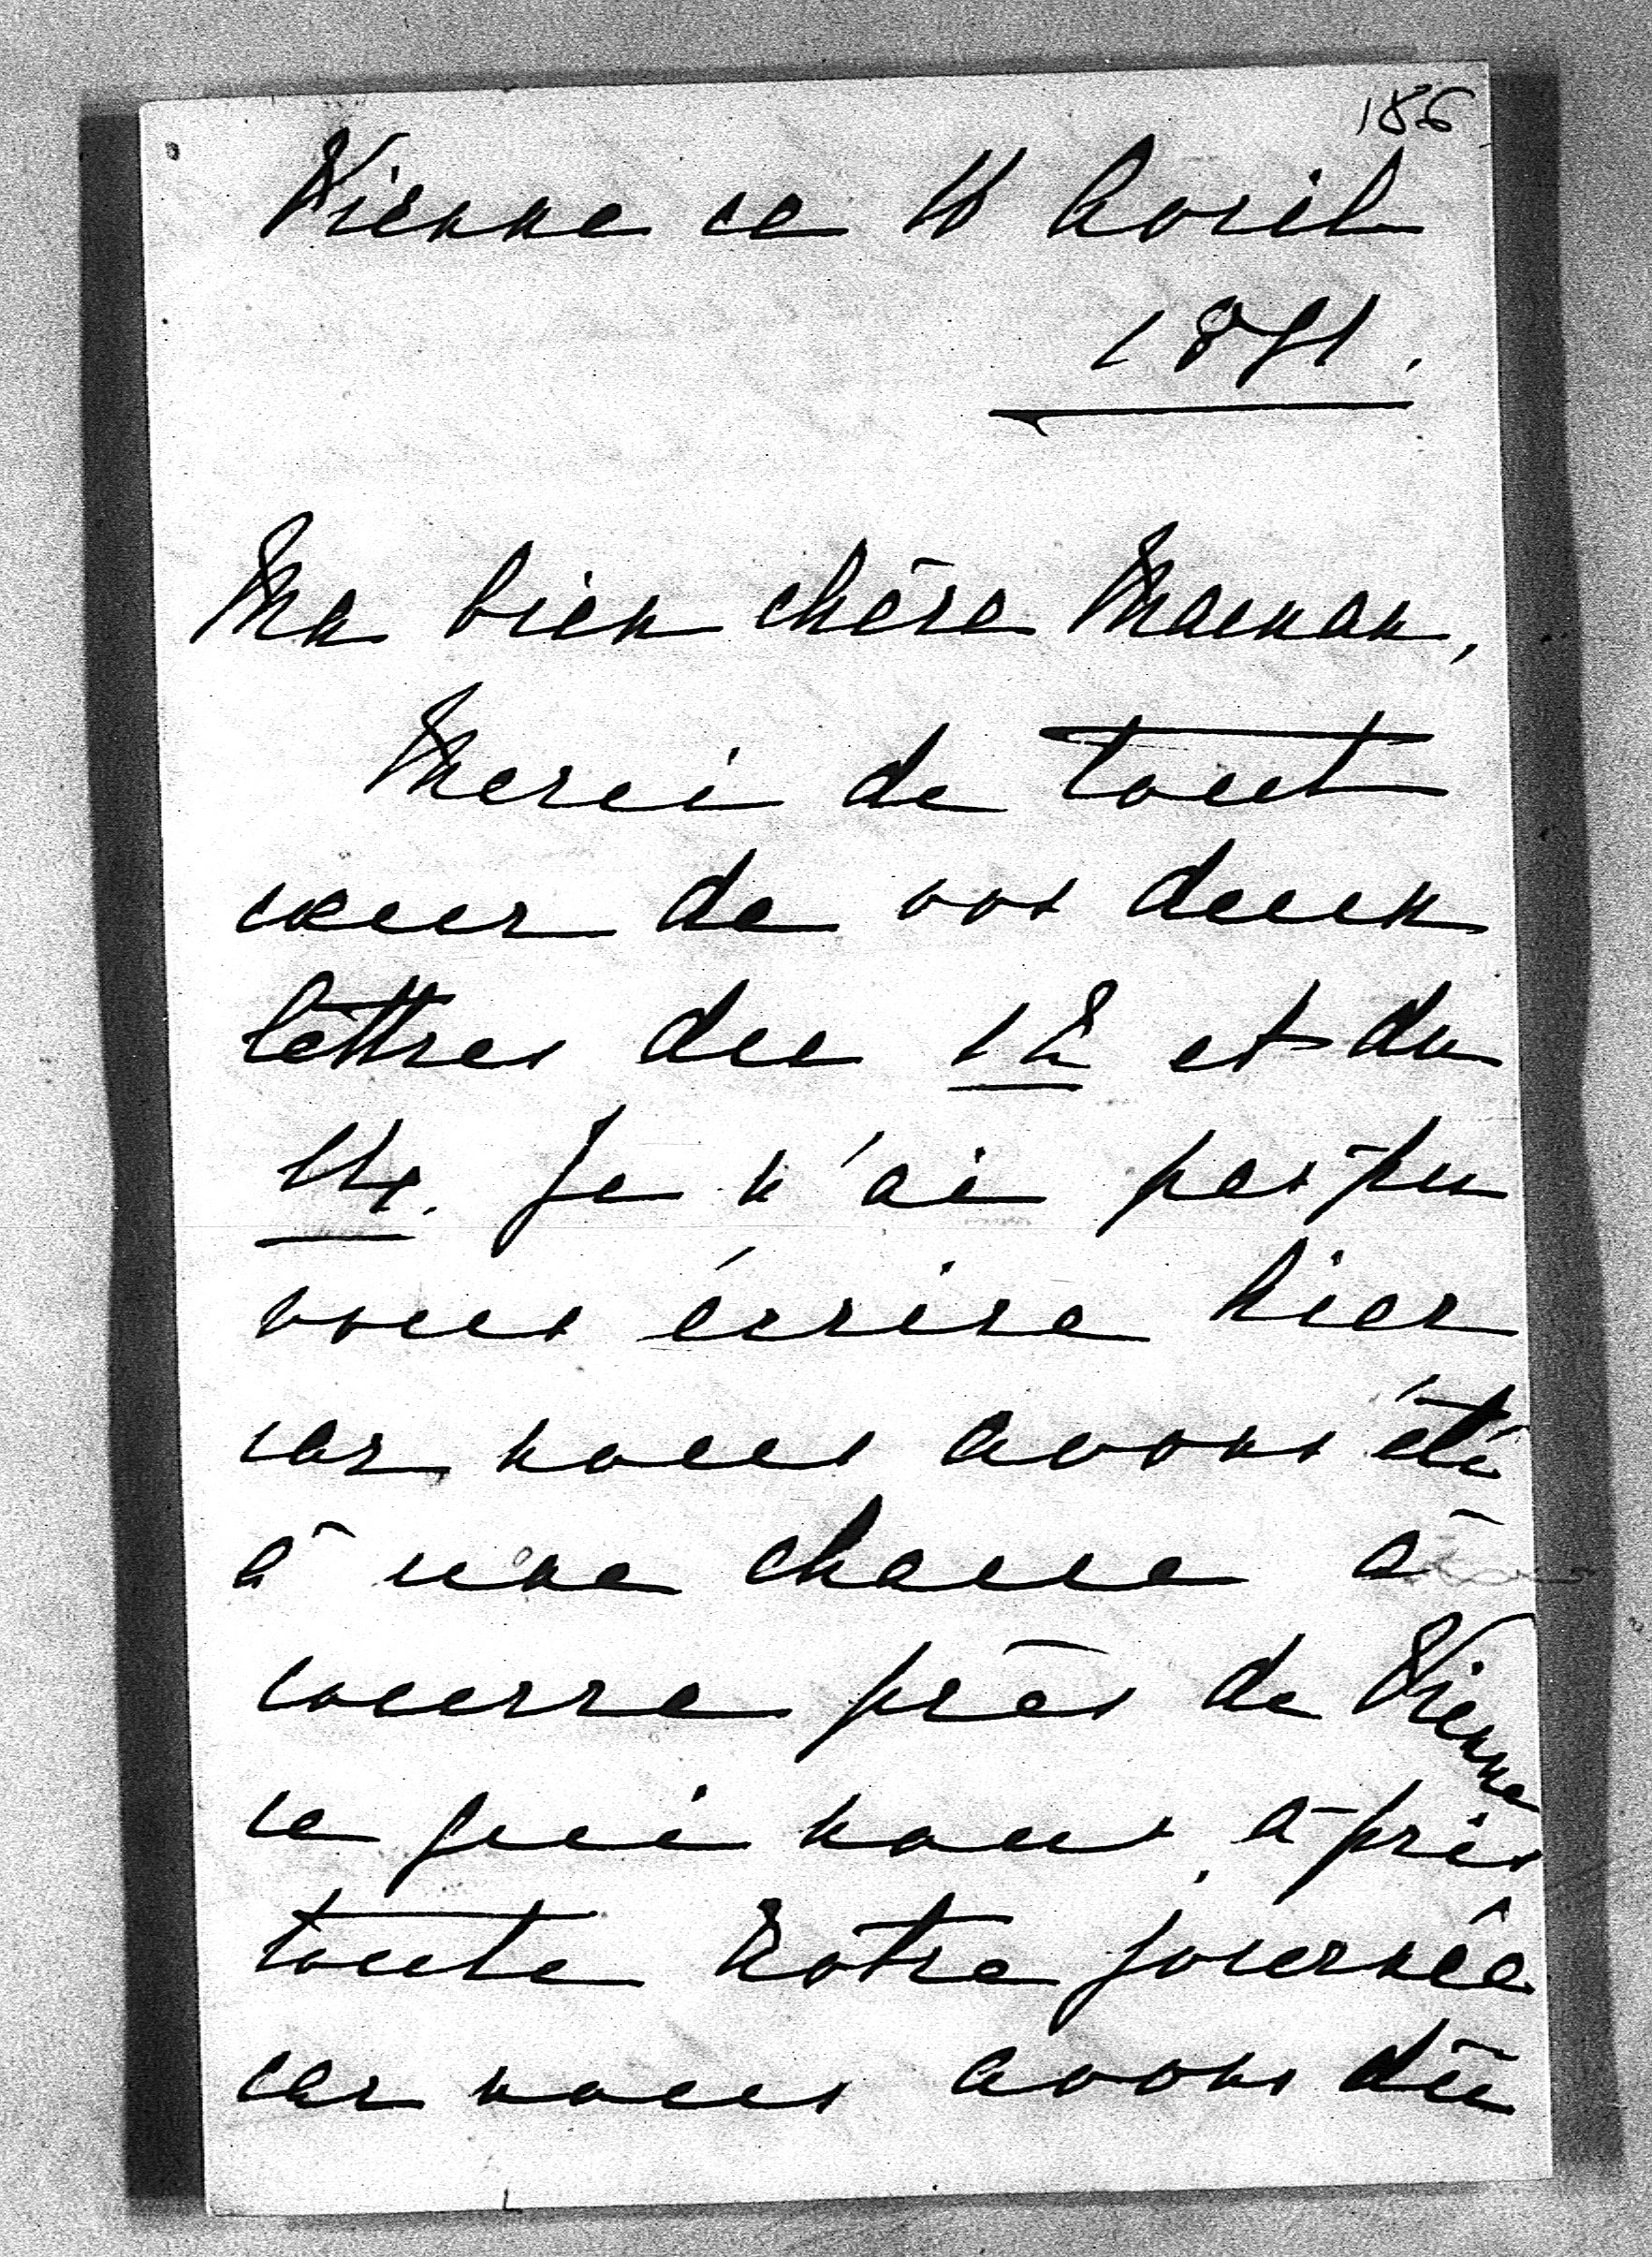 186
Vienne ce Avril
1871.
Ma bien chère Maman,
Merci de tout
cœur de vos deux
lettres du 12 et du
14. Je n'ai pas pu
vous écrire hier
car nous avons été
à une chasse à
courre près de Vienne
ce qui nous a pris
toute notre journée
car nous avons dû